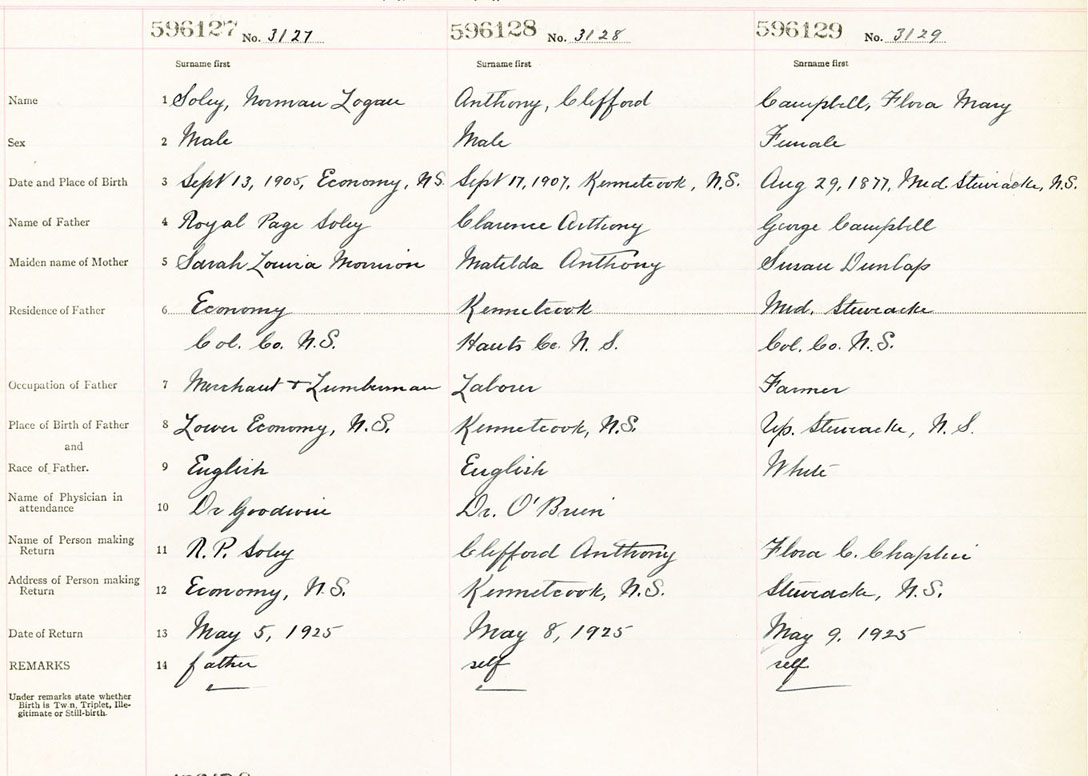 596127 No. 3127 596128 No. 3128 596129 No. 3129
Surname first Surname first Surname first
Name 1 Soley, Norman Logan Anthony, Clifford Campbell, Flora Mary
Sex 2 Male Male Female
Date and Place of Birth 3 Sept 13, 1905, Economy, N.S. Sept 17, 1907, Kennetcook, N.S. Aug 29, 1877, Mid. Stewiacke, N.S.
Name of Father 4 Royal Page Soley Clarence Anthony George Campbell
Maiden name of Mother 5 Sarah Louisa Morrison Matilda Anthony Susan Dunlap
Residence of Father 6 Economy Kennetcook Mid. Stewiacke
Col. Co. N.S. Hants Co. N.S. Col. Co. N.S.
Occupation of Father 7 Merchant + Lumberman Labour Farmer
Place of Birth of Father 8 Lower Economy, N.S. Kennetcook, N.S. Up. Stewiacke, N.S.
and
Race of Father. 9 English English White
Name of Physician in attendance 10 Dr Goodwin Dr. O'Brien
Name of Person making Return 11 R.P. Soley Clifford Anthony Flora C. Chaplin
Address of Person making Return 12 Economy, N.S. Kennetcook, N.S. Stewiacke, N.S.
Date of Return 13 May 5, 1925 May 8, 1925 May 9. 1925
REMARKS 14 father self self
Under remarks state whether
Birth is Twin, Triplet, Ille-
gitimate or Still-birth.